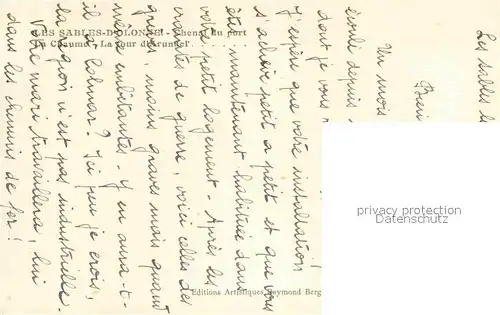 LES SABLES-D'OLONNE - Chenal du port
La Chaume - La tour d'Arundel
Les Sables le
Un mois
écoulé depuis
dont je vous
J'espère que votre installation
s'achève petit à petit et que vous
êtes maintenant habituée dans
votre petit logement - Après les
vraies de guerre, voici celles des
grèves, moins graves mais quand
même embêtantes - Y en aura-t-
il à Colmar? Ici peu je crois,
la région n'est pas industrielle.
Votre mari travaillera, lui
dans les chemins de fer!
Editions Artistiques Raymond Berg
privacy protection
documents